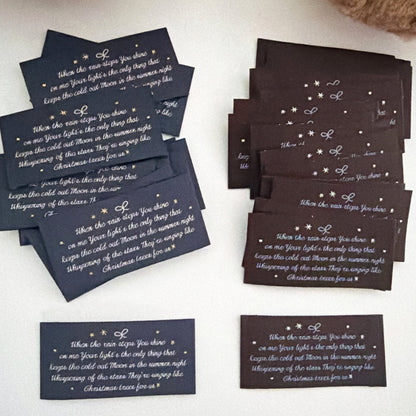 When the rain stops You shine
on me Your light's the only thing that
keeps the cold out Moon in the summer night
When the rain stops You shine
on me Your light's the only thing that
keeps the cold out Moon in the summer night
Whispering of the stars They're singing like
Christmas trees for us
keeps the cold out Moon in the summer night
When the rain stops You shine
on me Your light's the only thing that
keeps the cold out Moon in the summer night
Whispering of the stars They're singing like
Christmas trees for us
When the rain stops You shine
When the rain stops You shine
on me Your light's the only thing that
keeps the cold out Moon in the summer night
Whispering of the stars They're singing like
Christmas trees for us
When the rain stops You shine
on me Your light's the only thing that
keeps the cold out Moon in the summer night
Whispering of the stars They're singing like
Christmas trees for us
When the rain stops You shine
on me Your light's the only thing that
keeps the cold out Moon in the summer night
Whispering of the stars They're singing like
Christmas trees for us